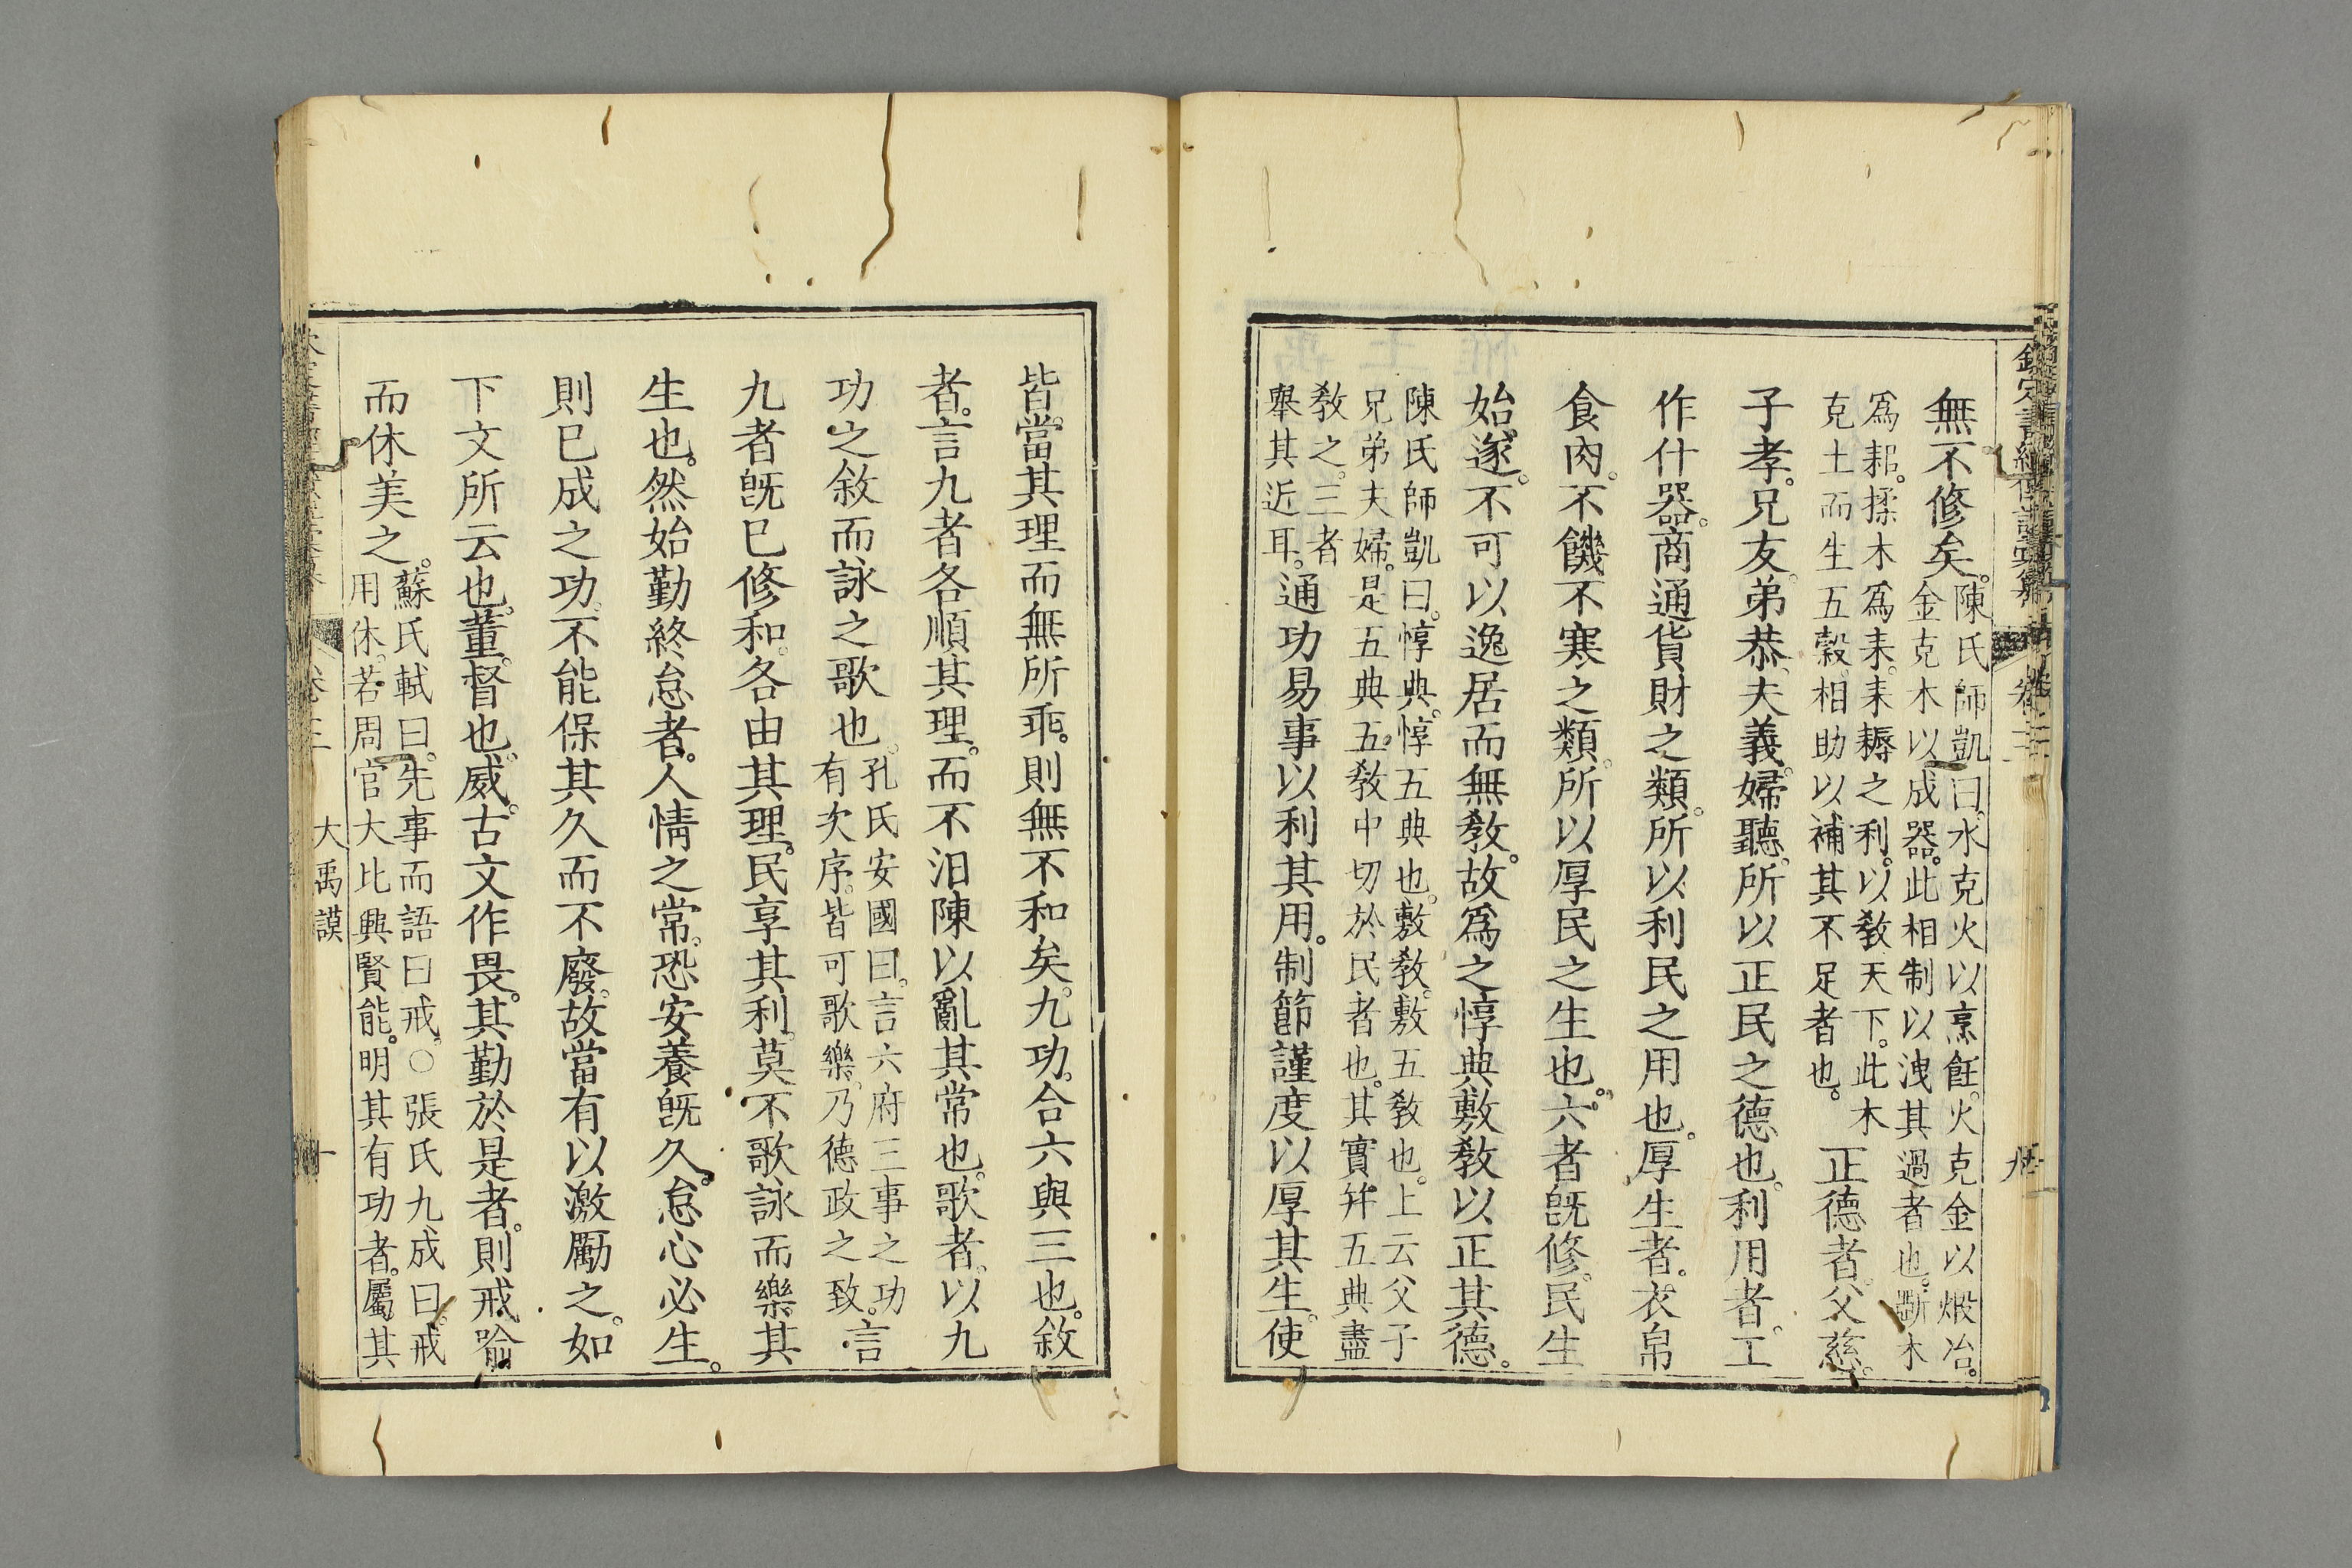 無不修矣。陳氏師凱曰。水克火以烹飪。火克金以煅冶。金克木以成器。此相制以洩其過者也。斲木
爲耜。揉木爲耒。耒耨之利。以敎天下。此木克土而生五穀。相助以補其不足者也。正德者。父慈。
子孝。兄友。弟恭。夫義。婦聽。所以正民之德也。利用者。工
作什器。商通貨財之類。所以利民之用也。厚生者。衣帛
食肉。不饑不寒之類。所以厚民之生也。六者旣修。民生
始遂。不可以逸居而無敎。故爲之惇典敷敎以正其德。
陳氏師凱曰。惇典。惇五典也。敷敎。敷五敎也。上云父子兄弟夫婦。是五典五敎中切於民者也。其實幷五典盡
敎之。三者舉其近耳。通功易事以利其用。制節謹度以厚其生。使
皆當其理而無所乖。則無不和矣。九功。合六與三也。敘
者。言九者各順其理。而不汨陳以亂其常也。歌者。以九
功之敘而詠之歌也。孔氏安國曰。言六府三事之功有次序。皆可歌樂。乃德政之致。言
九者旣已修和。各由其理。民享其利。莫不歌詠而樂其
生也。然始勤終怠者。人情之常。恐安養旣久。怠心必生。
則已成之功。不能保其久而不廢。故當有以激勵之。如
下文所云也。董。督也。威。古文作畏。其勤於是者。則戒喻
而休美之。蘇氏軾曰。先事而語曰戒。○張氏九成曰。戒用休。若周官大比興賢能。明其有功者。屬其
卷三 大禹謨